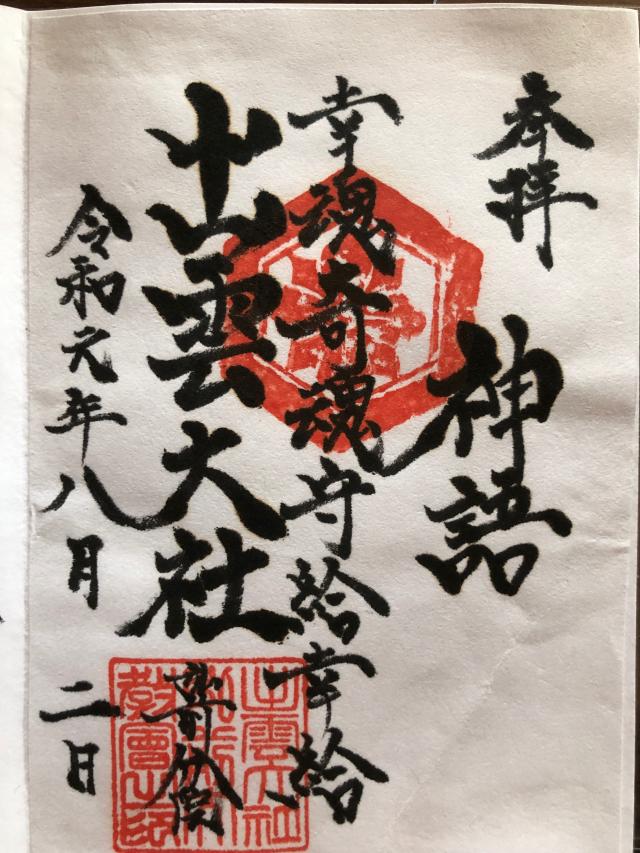 奉拝
神語
幸魂奇魂守給幸給
出雲大社
分院
令和元年八月二日
出雲大社
教會之印